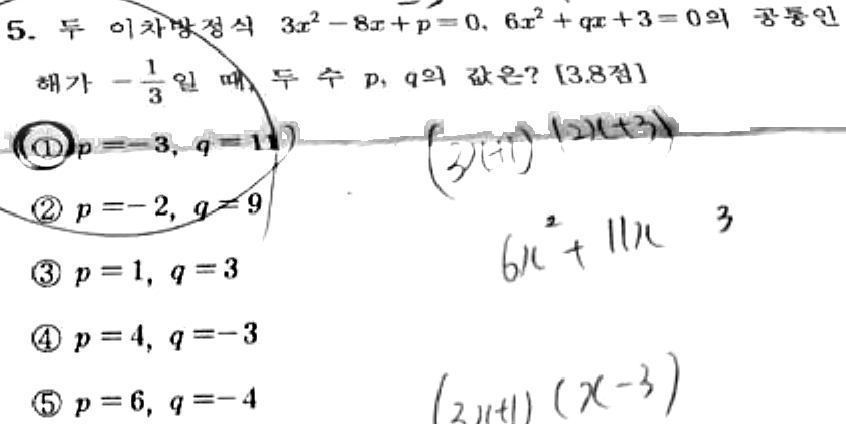 5. 두 이차방정식 3x² − 8x + p = 0, 6x² + qx + 3 = 0의 공통인
해가 −1/3일 때, 두 수 p, q의 값은? [3.8점]
① p = −3, q = 11
(3x+1) (2x+3)
② p = −2, q = 9
6x² + 11x 3
③ p = 1, q = 3
④ p = 4, q = −3
⑤ p = 6, q = −4
(3x+1) (x−3)